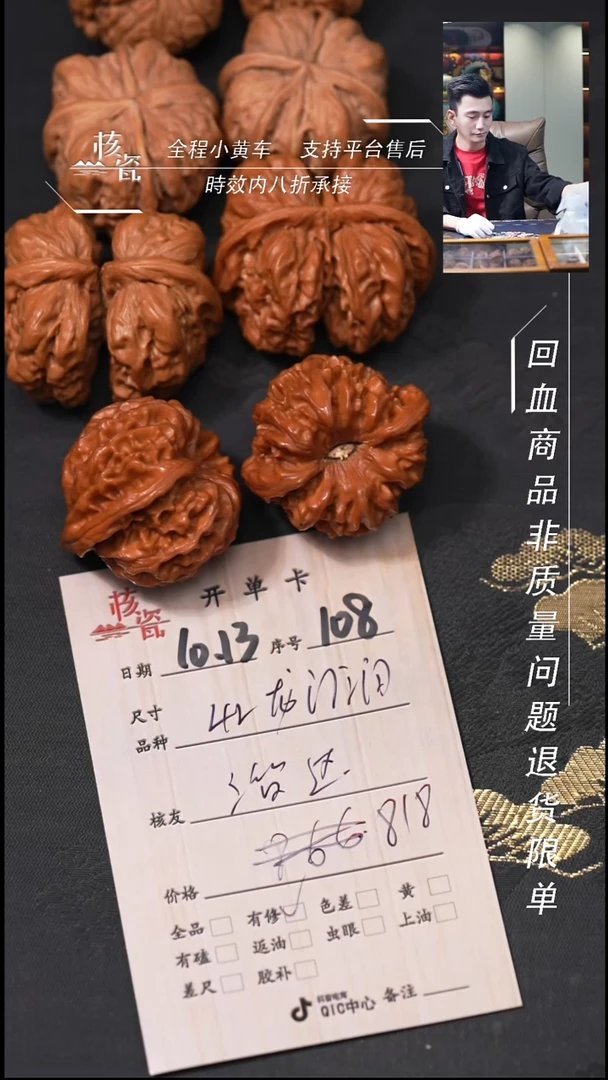 核瓷
全程小黄车 支持平台售后
時效内八折承接
回血商品非质量问题退货限单
核瓷
开单卡
日期 10.13 序号 108
尺寸
品种 42 龙门润
核友
价格 766 818
全品 有修 色差 黄
有磕 返油 虫眼 上油
差尺 胶补
抖音电商
QIC中心 备注